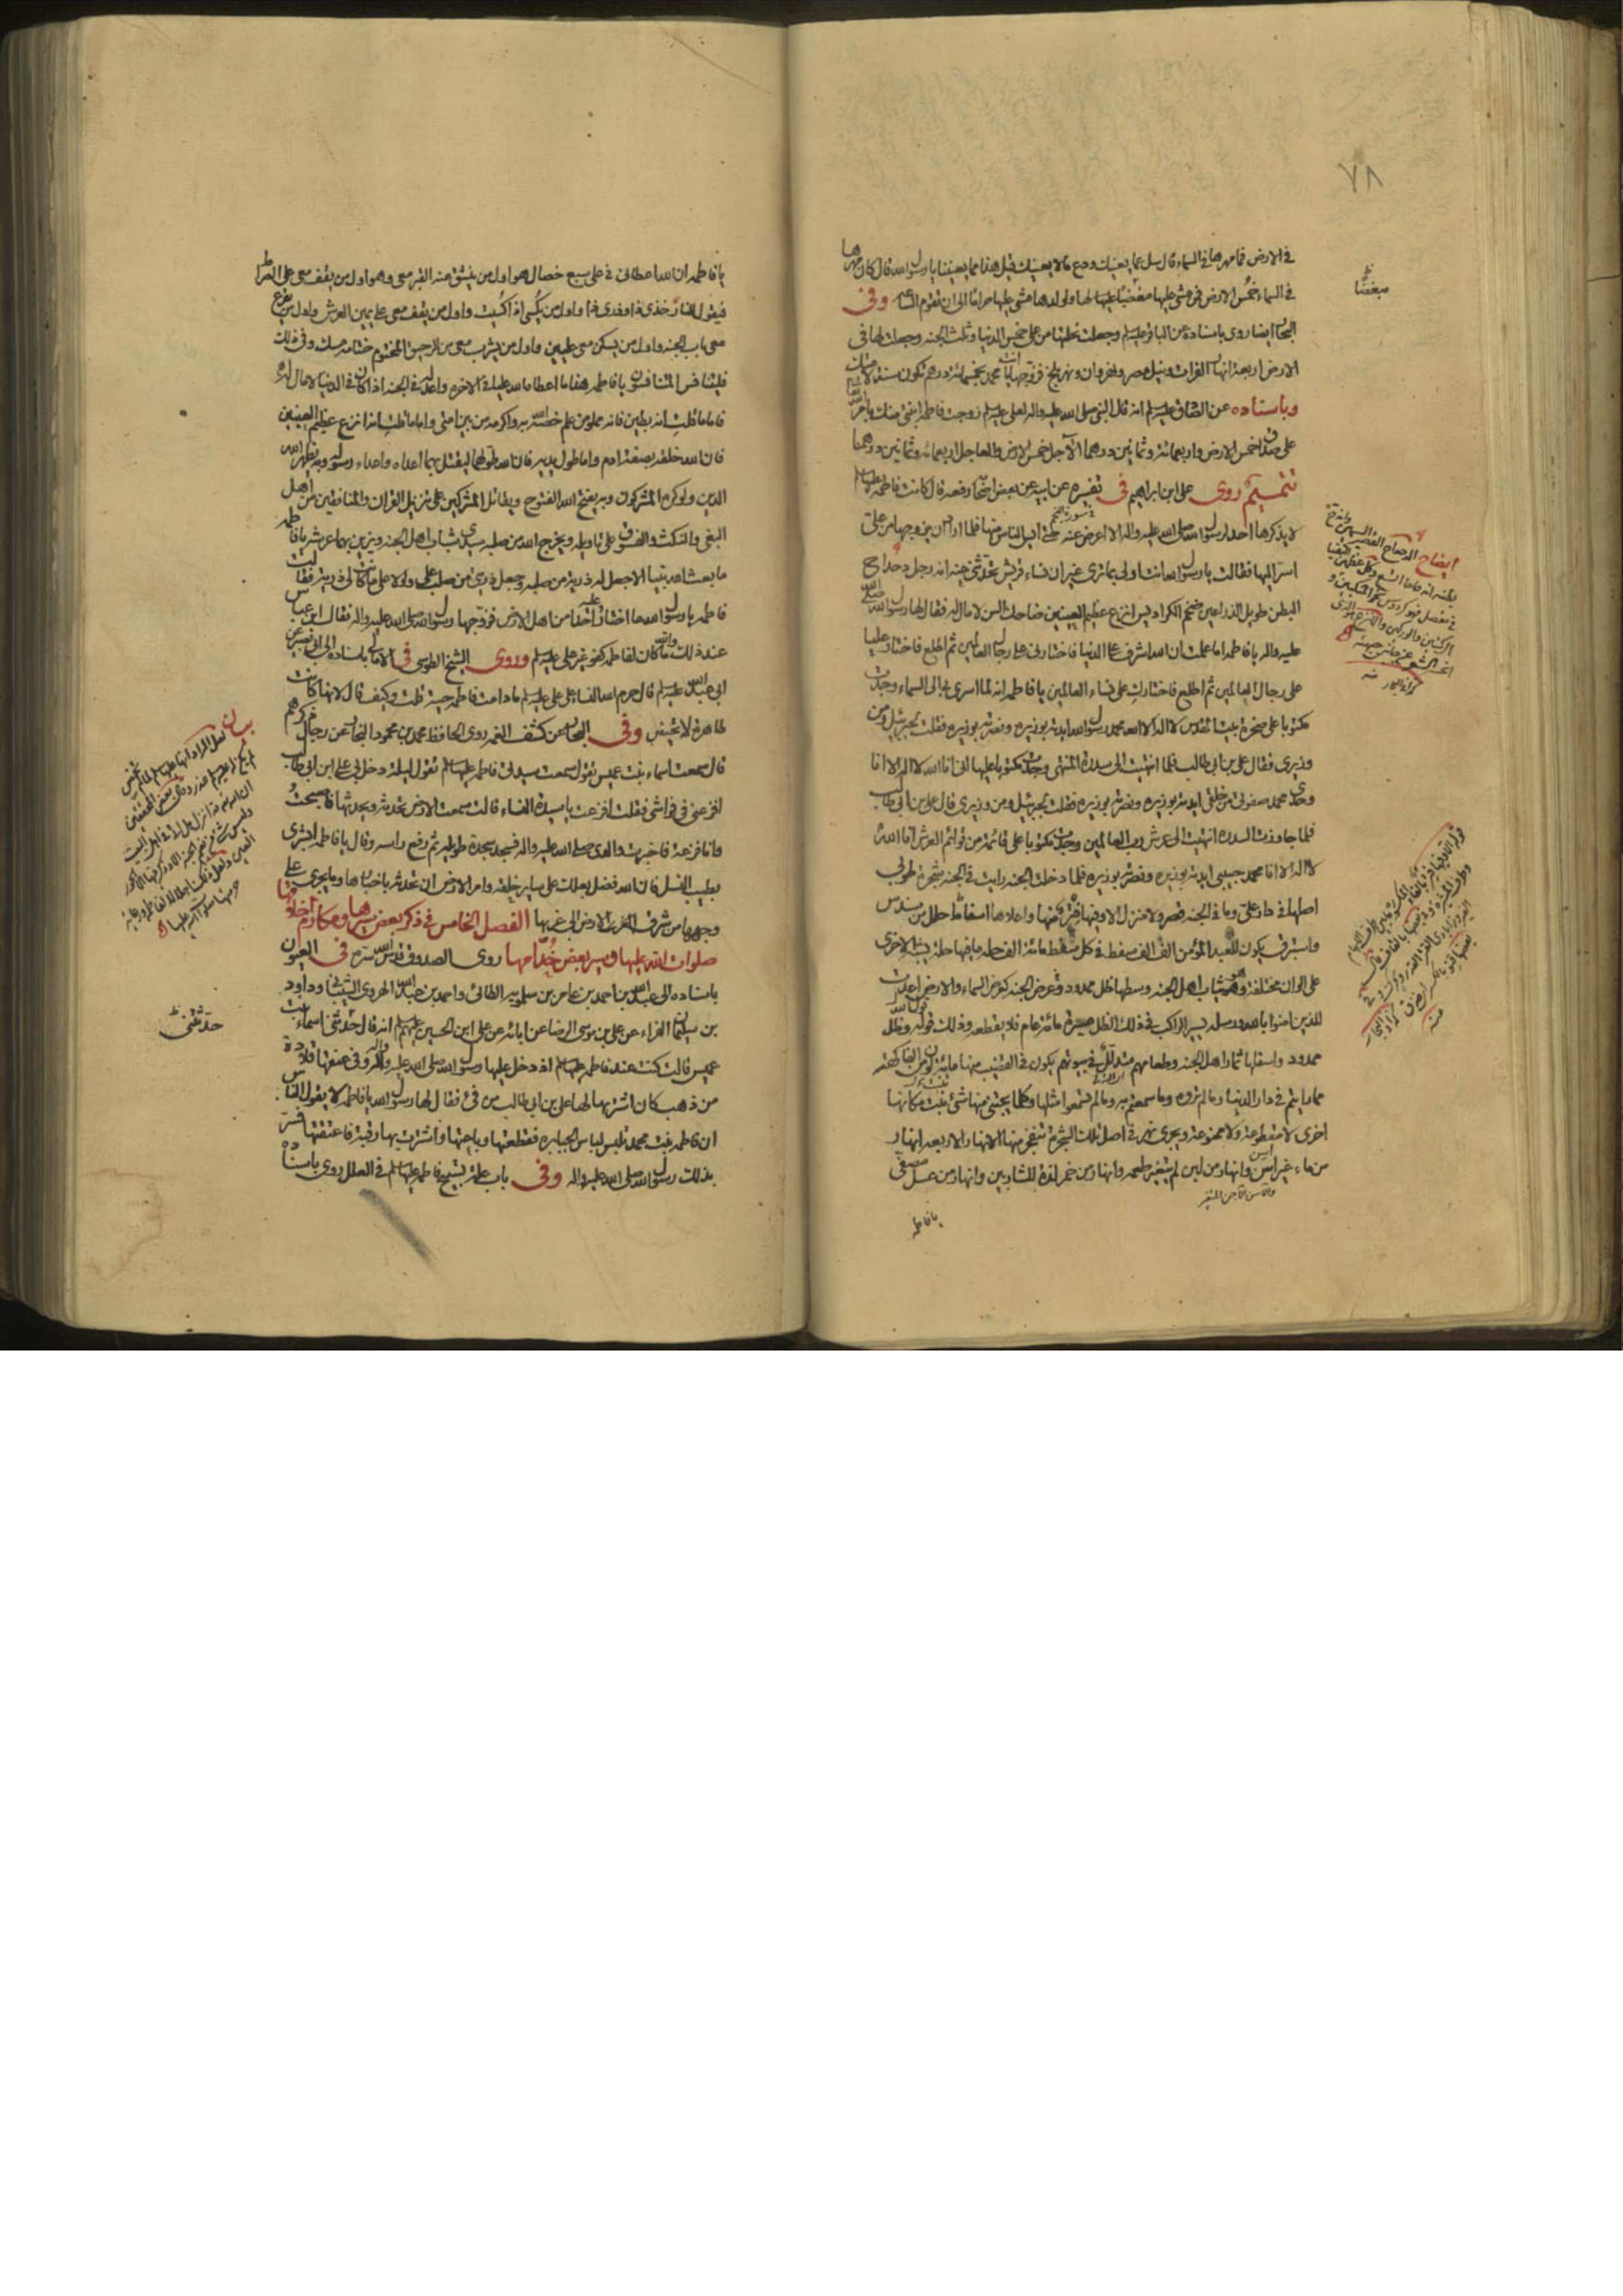 ٧٨
في الارض فما مهرها في السماء قال سل عما يعنيك ودع مالا يعنيك قيل هذا مما يعنينا يا رسول الله قال كان مهرها
في السماء خمس الارض فمن مشى عليها مغضبا عليها لها ولولدها مشى عليها حراما الى ان تقوم الساعة وفي
البحار ايضا روى باسناده عن الباقر عليه السلم وجعلت نحلتها من على خمس الدنيا وثلث الجنه وجعلت لها في
الارض اربعة انهار الفرات ونيل مصر ونهروان ونهر بلخ فزوجها انت يا محمد بخمسمائة درهم تكون سنة لامتك
وباسناده عن الصادق عليه السلم انه قال النبي صلى الله عليه واله لعلي عليه السلم زوجت فاطمة ابنتي منك بامر الله
على صداق خمس الارض واربعمائة وثمانين درهما الآجل خمس الارض والعاجل اربعمائه وثمانين درهما
تتميم روى علي ابن ابراهيم في تفسيره عن ابيه عن بعض اصحابه رفعه قال كانت فاطمة عليها السلم
لا يذكرها احد لرسول الله صلى الله عليه واله الا اعرض عنه حتى ايس الناس منها فلما اراد ان يزوجها من علي
اسر اليها فقالت يا رسول الله انت اولى بما ترى غير ان نساء قريش تحدثني عنه انه رجل دحداح
البطن طويل الذراعين ضخم الكراديس انزع عظيم العينين ضاحك السن لا مال له فقال لها رسول الله صلى الله
عليه واله يا فاطمه اما علمت ان الله اشرف على الدنيا فاختارني على رجال العالمين ثم اطلع فاختار عليا
على رجال العالمين ثم اطلع فاختارك على نساء العالمين يا فاطمه انه لما اسرى بي الى السماء وجدت
مكتوبا على صخرة بيت المقدس لا اله الا الله محمد رسول الله ايدته بوزيره ونصرته بوزيره فقلت لجبرئيل ومن
وزيري فقال علي بن ابي طالب فلما انتهيت الى سدرة المنتهى وجدت مكتوبا عليها اني انا الله لا اله الا انا
وحدي محمد صفوتي من خلقي ايدته بوزيره ونصرته بوزيره فقلت لجبرئيل ومن وزيري قال علي بن ابي طالب
فلما جاوزت السدرة انتهيت الى عرش رب العالمين وجدت مكتوبا على قائمة من قوائم العرش انا الله
لا اله الا انا محمد حبيبي ايدته بوزيره ونصرته بوزيره فلما دخلت الجنه رايت في الجنه شجرة طوبى
اصلها في دار علي وما في الجنه قصر ولا منزل الا وفيها فرع منها واعلاها اسفاط حلل من سندس
واستبرق يكون للعبد المؤمن الف الف سفط في كل سفط مائة الف حلة ما فيها حلة يشبه الاخرى
على الوان مختلفة وهو ثياب اهل الجنه وسطها ظل ممدود وعرض الجنه كعرض السماء والارض اعدت
للذين امنوا بالله ورسله يسير الراكب في ذلك الظل مسيرة مائة عام فلا يقطعه وذلك قول الله وظل
ممدود واسفلها ثمار اهل الجنه وطعامهم متدلل في بيوتهم يكون في القضيب منها مائة لون من الفاكهة
مما رايتم في دار الدنيا ومالم تروه وما سمعتم به ومالم تسمعوا مثلها وكلما يجتنى منها شئ نبتت مكانها
اخرى لا مقطوعة ولا ممنوعة ويجري نهر في اصل تلك الشجرة تنفجر منها الانهار الاربعه انهار
من ماء غير اسن وانهار من لبن لم يتغير طعمه وانهار من خمر لذة للشاربين وانهار من عسل مصفى
يا فاطمه
يا فاطمه ان الله اعطاني في علي سبع خصال هو اول من ينشق عنه القبر معي وهو اول من يقف معي على الصراط
فيقول للنار خذي ذا وذري ذا واول من يكسى اذا كسيت واول من يقف معي على يمين العرش واول من يقرع
معي باب الجنه واول من يسكن معي عليين واول من يشرب معي من الرحيق المختوم ختامه مسك وفي ذلك
فليتنافس المتنافسون يا فاطمه هذا ما اعطاه الله عليا في الاخره واعد له في الجنه اذا كان في الدنيا لا مال له
فاما ما قلت انه بطين فانه مملو من علم خصه الله به واكرمه من بين امتي واما ما قلت انه انزع عظيم العينين
فان الله خلقه بصفة ادم واما طول يديه فان الله طولهما ليقتل بهما اعداه واعداء رسوله وبه يظهر الله
الدين ولو كره المشركون وبه يفتح الله الفتوح ويقاتل المشركين على تنزيل القران والمنافقين من اهل
البغي والنكث والفسوق على تاويله ويخرج الله من صلبه سيدي شباب اهل الجنه ويزين بهما عرشه يا فاطمه
ما بعث الله نبيا الا جعل له ذرية من صلبه وجعل ذريتي من صلب علي ولولا علي ما كانت لي ذرية فقالت
فاطمه يا رسول الله ما اختار عليه احدا من اهل الارض فزوجها رسول الله صلى الله عليه واله فقال ابن عباس
عند ذلك والله ما كان لفاطمه كفو غير علي عليه السلم وروى الشيخ الطوسي في الامالي باسناده الى ابي بصير عن
ابي عبد الله عليه السلم قال حرم الله النساء على علي عليه السلم مادامت فاطمة حية قلت وكيف قال لانها كانت
طاهرة لا تحيض وفي البحار عن كشف الغمه روى الحافظ محمد بن محمود النجار عن رجال ذكرهم
قال سمعت اسماء بنت عميس تقول سمعت سيدتي فاطمه عليها السلم تقول ليلة دخل بي علي ابن ابي طالب
افزعني في فراشي فقلت افزعت يا سيدة النساء قالت سمعت الارض تحدثه ويحدثها فاصبحت
وانا فزعة فاخبرت والدي صلى الله عليه واله فسجد سجدة طويله ثم رفع راسه وقال يا فاطمه ابشري
بطيب النسل فان الله فضل بعلك على ساير خلقه وامر الارض ان تحدثه باخبارها وما يجري على
وجهها من شرق الارض الى غربها الفصل الخامس في ذكر بعض سيرها ومكارم اخلاقها
صلوات الله عليها وسير بعض خدامها روى الصدوق قدس الله سره في العيون
باسناده الى عبد الله بن احمد بن عامر بن سلمويه الطائي واحمد بن عبد الله الهروي الشيباني وداود
بن سليمان الفراء عن علي بن موسى الرضا عن ابائه عن علي ابن الحسين عليهم السلم انه قال حدثتني اسماء بنت
عميس قالت كنت عند فاطمه عليها السلم اذ دخل عليها رسول الله صلى الله عليه واله وفي عنقها قلادة
من ذهب كان اشتريها لها علي بن ابي طالب من فئ فقال لها رسول الله يا فاطمه لا يقول الناس
ان فاطمه بنت محمد تلبس لباس الجبابره فقطعتها وباعتها واشترت بها رقبة فاعتقتها فسر
بذلك رسول الله صلى الله عليه واله وفي باب علة تسبيح فاطمه عليها السلم في العلل روى باسناده
حدثتني